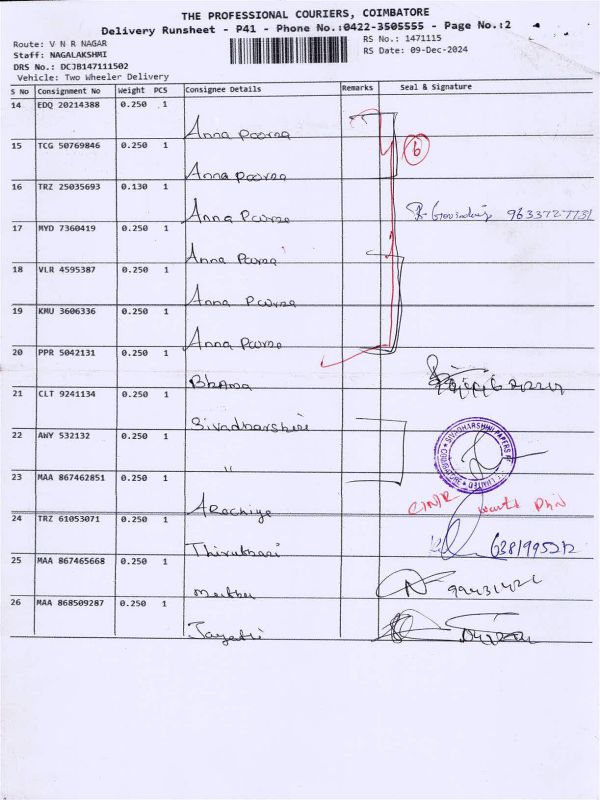 THE PROFESSIONAL COURIERS, COIMBATORE
Delivery Runsheet - P41 - Phone No.:0422-3505555 - Page No.:2
Route: V N R NAGAR
RS No.: 1471115
Staff: NAGALAKSHMI
RS Date: 09-Dec-2024
DRS No.: DCJB147111502
Vehicle: Two Wheeler Delivery
S No Consignment No Weight PCS Consignee Details Remarks Seal & Signature
14 EDQ 20214388 0.250 1
Anna Poorna
15 TCG 50769846 0.250 1
6
Anna Poorna
16 TRZ 25035693 0.130 1
Anna Poorna 9633727731
17 MYD 7360419 0.250 1
Anna Poorna
18 VLR 4595387 0.250 1
Anna Poorna
19 KMU 3606336 0.250 1
Anna Poorna
20 PPR 5042131 0.250 1
Bhama
21 CLT 9241134 0.250 1
Sivadharshini
22 AWY 532132 0.250 1
"
23 MAA 867462851 0.250 1
24 TRZ 61053071 0.250 1
6381995212
25 MAA 867465668 0.250 1
26 MAA 868509287 0.250 1